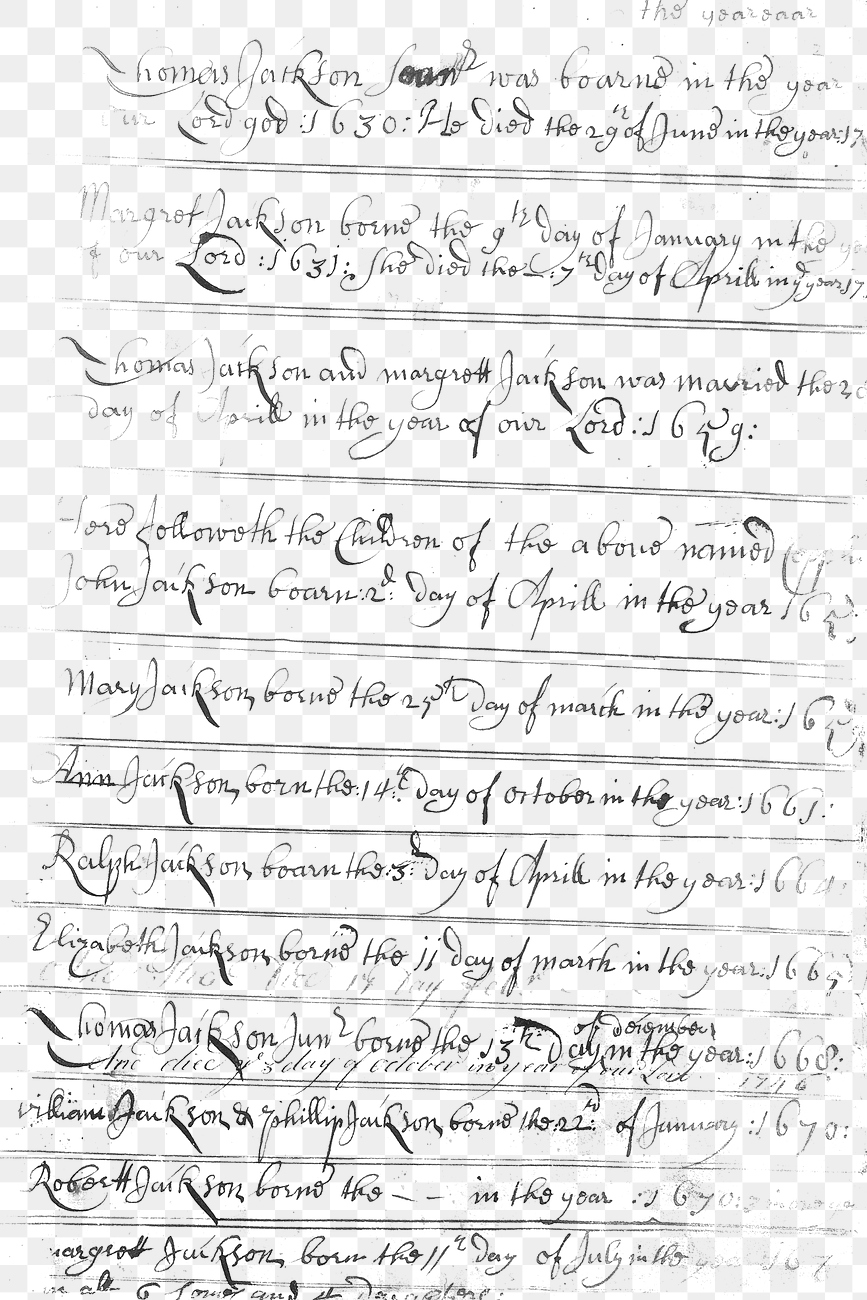 the yeareaar
Thomas Jackson was boarne in the year
our Lord god :1630: He died the 29th of June in the year:17
Margret Jackson borne the 9th day of January in the ye
of our Lord :1631: She died the — :7th day of Aprill in ye year 17
Thomas Jackson and margrett Jackson was married the 20
day of Aprill in the year of our Lord :1659:
Here followeth the Children of the above named
John Jackson boarn: 2d: day of Aprill in the year 165
Mary Jackson borne the 25th day of march in the year: 165
Ann Jackson born the: 14th: day of october in the year: 1661:
Ralph Jackson boarn the: 3d day of Aprill in the year: 1664:
Elizabeth Jackson borne the 11 day of march in the year: 1665
day
of desember
Thomas Jackson Junr borne the 13th Day in the year: 1668:
And died ye 3 day of October in ye year of our Lord 1746
william Jackson & phillip Jackson borne the: 22th: of January : 1670:
Robertt Jackson borne the — — in the year : 1670:
argrett Jackson born the 11th day of July in the year 167
in all 6 sones and 4 Daughters: